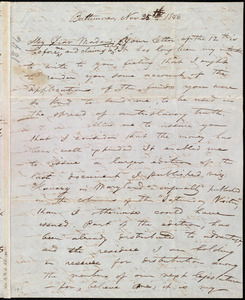 Baltimore, Nov 25th 1844
My Dear Madam, Your letter of the 12th is
before me and 
It has long been my 
to write to you feeling that I ought
to render you some account of the
application of the funds you were
so kind to send me, to be used in
the spread of anti-slavery truth
allow me to assure you
that I consider that the money has
been well expended. It enabled me
to issue a larger edition of the
last document I published, viz:
Slavery in Maryland – originally published
in the columns of the Saturday Visiter,
than I otherwise could have
issued. Part of the edition has
been already distributed to advantage,
and the residue holding
in reserve for distribution during
the meeting of our next Legislature
– for, believe me, it is my